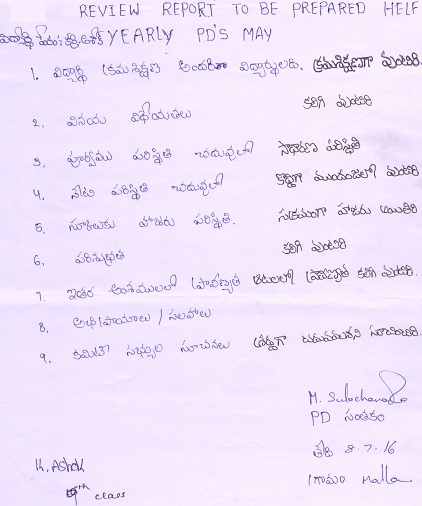 REVIEW REPORT TO BE PREPARED HELF
విద్యార్థి పేరు: కె. అశోక్ YEARLY PD'S MAY
1. విద్యార్థి క్రమశిక్షణ అందరితో విద్యార్థులకు. క్రమశిక్షణగా వుంటాడి.
2. వినయ విధేయతలు కలిగి వుంటాడి
3. పూర్వము పరిస్థితి చదువులో సాధారణ పరిస్థితి
4. నేటి పరిస్థితి చదువులో కొద్దిగా ముందంజలో వుంటాడి
5. స్కూలుకు హాజరు పరిస్థితి. సక్రమంగా హాజరు అయితాడి
6. పరిశుభ్రత కలిగి వుంటాడి
7. ఇతర అంశములలో ప్రావీణ్యత ఆటలలో ప్రావీణ్యత కలిగి వుంటాడి.
8. అభిప్రాయాలు / సలహాలు
9. కమిటీ సభ్యుల సూచనలు శ్రద్ధగా చదువుమని సూచించాడి.
M. Sulochana
PD సంతకం
తేది 8.7.16
గ్రామం Malla
K. Ashok
9th class